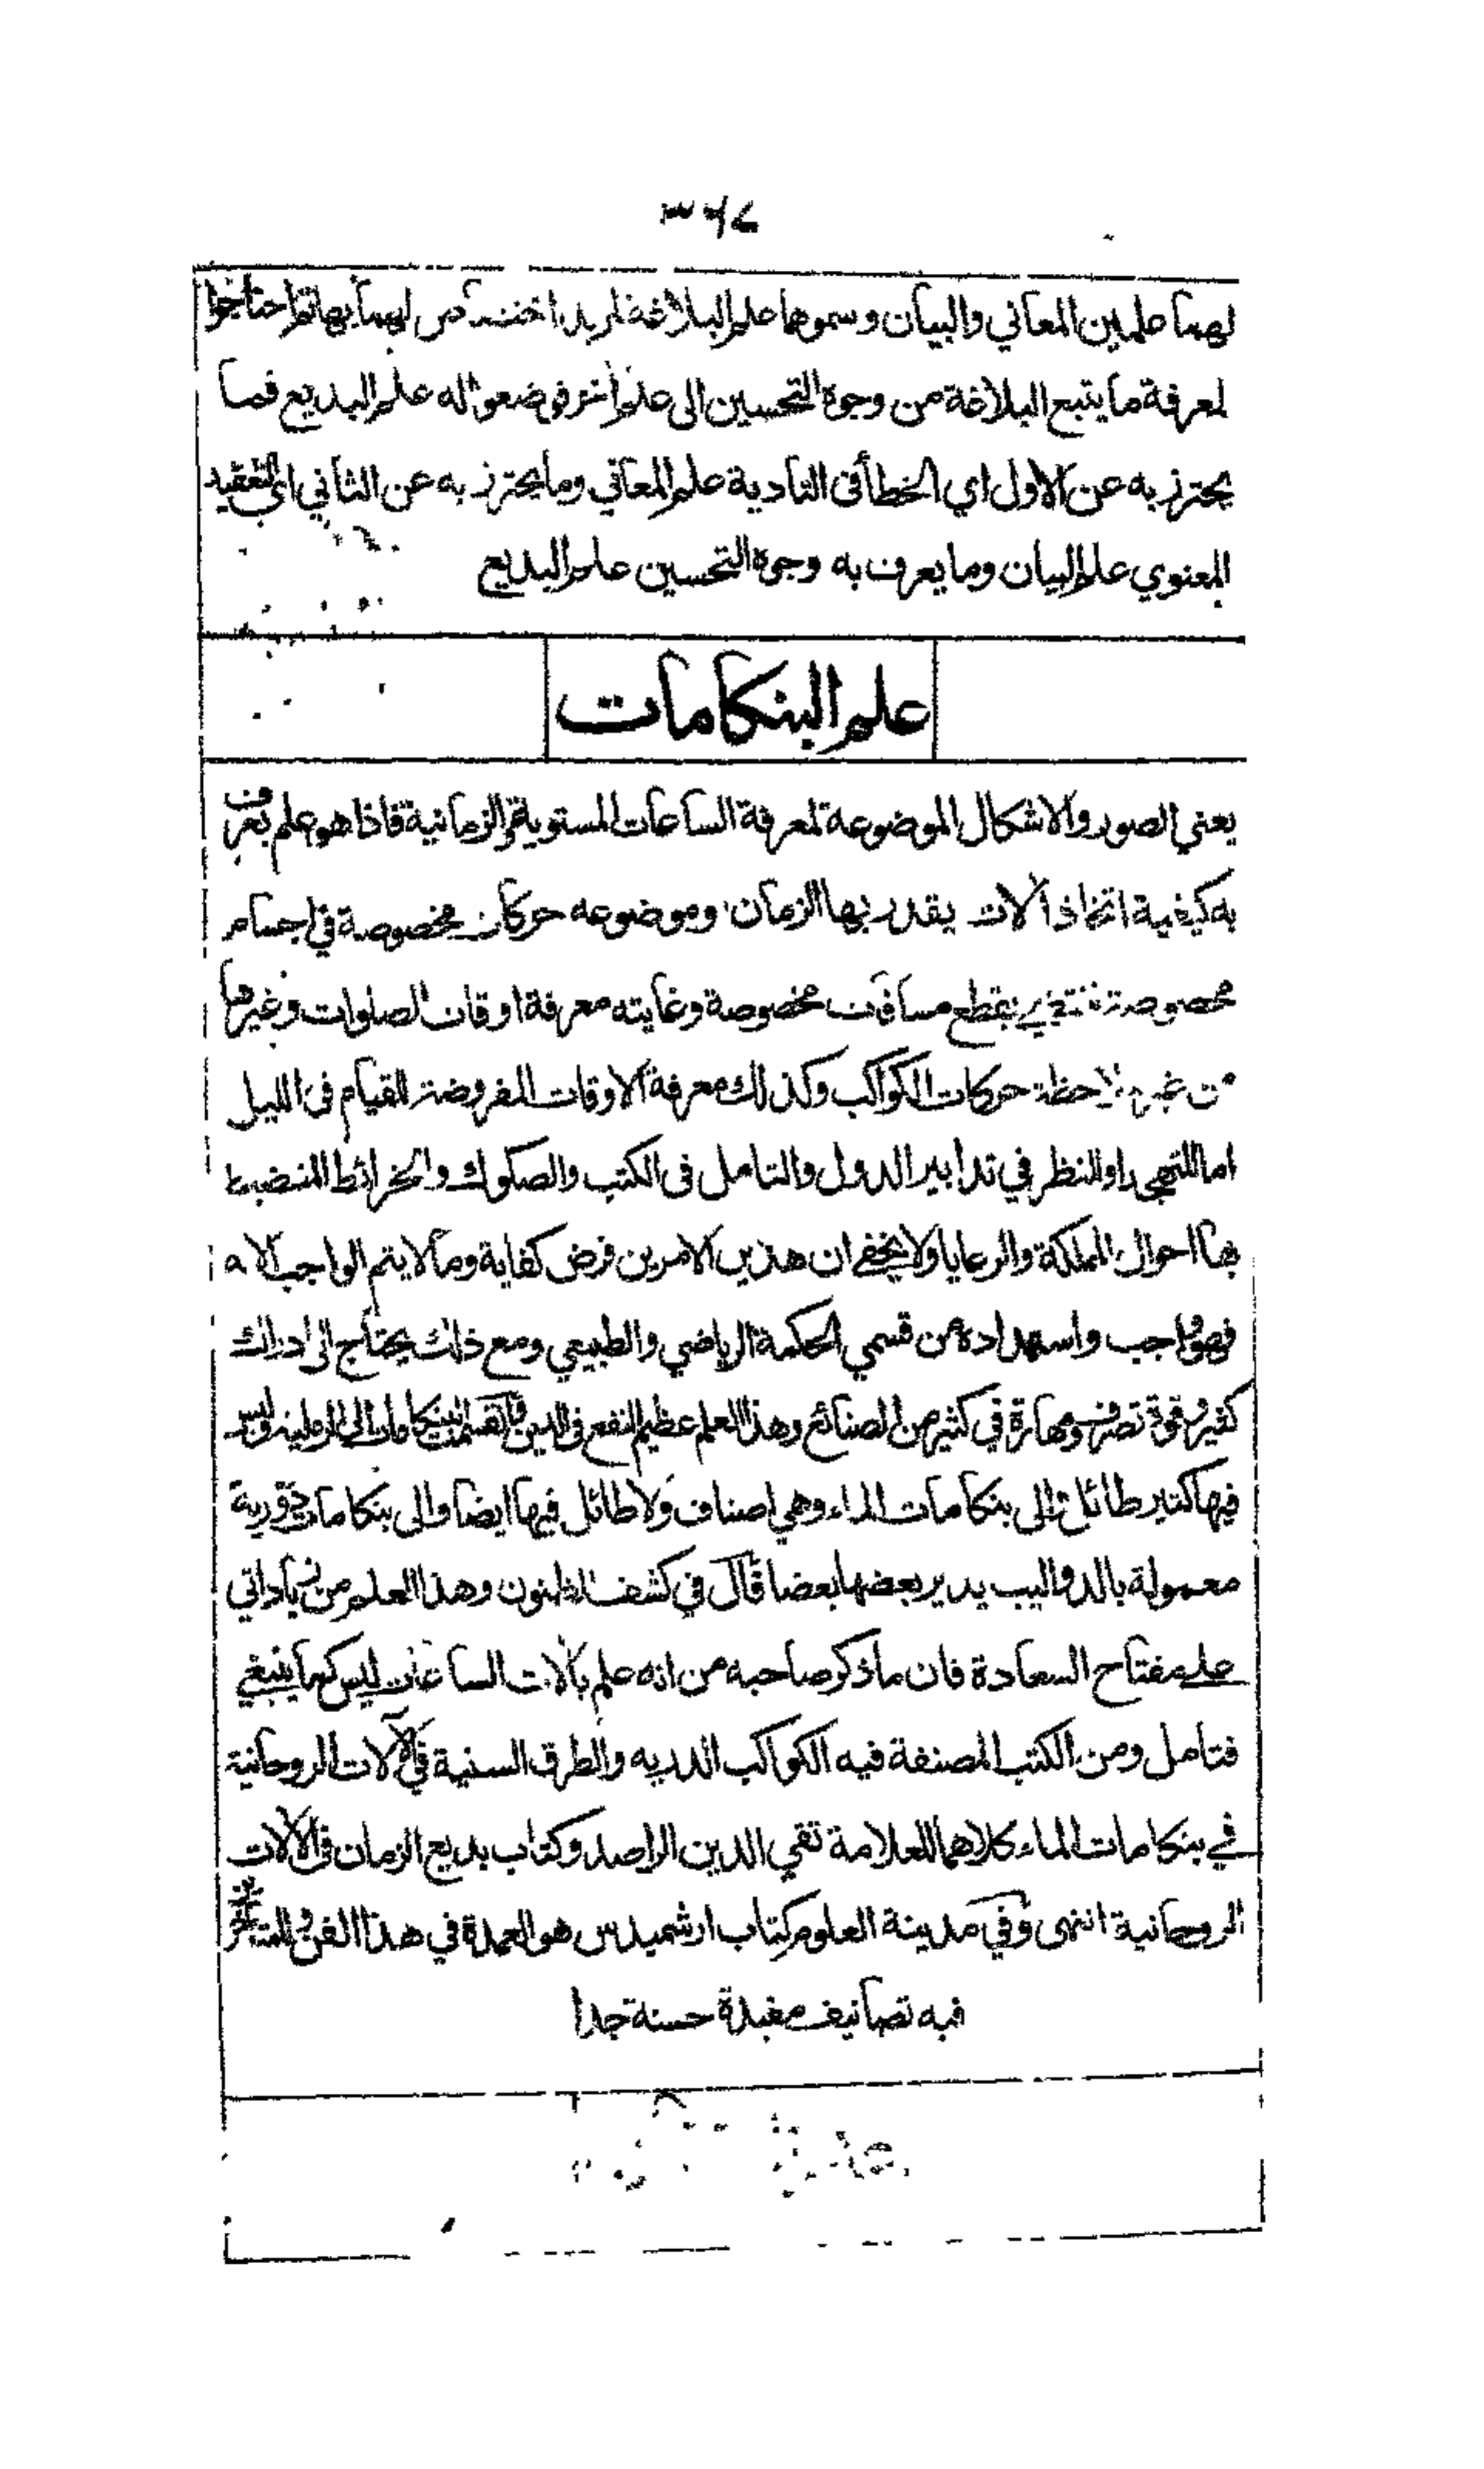 ٣٦٧
لهما علمين المعاني والبيان وسموهما علم البلاغة لمزيد اختصاص لهما بها ثم احتاجوا
لمعرفة ما يتبع البلاغة من وجوه التحسين الى علم اخر فوضعوا له علم البديع فما
يحترز به عن الاول اي الخطأ فى التادية علم المعاني وما يحترز به عن الثاني اي التعقيد
المعنوي علم البيان وما يعرف به وجوه التحسين علم البديع
علم البنكامات
يعني الصور والاشكال الموضوعة لمعرفة الساعات المستوية والزمانية فاذا هو علم يعرف
به كيفية اتخاذ آلات يقدر بها الزمان وموضوعه حركات مخصوصة في اجسام
مخصوصة تنقضي بقطع مسافات مخصوصة وغايته معرفة اوقات الصلوات وغيرها
من غير ملاحظة حركات الكواكب وكذلك معرفة الاوقات المفروضة للقيام فى الليل
اما للتهجد او للنظر في تدابير الدول والتامل فى الكتب والصكوك والخرائط المنضبط
بها احوال المملكة والرعايا ولا يخفى ان هذين الامرين فرض كفاية وما لا يتم الواجب الا به
فهو واجب واستمداده من قسمي الحكمة الرياضي والطبيعي ومع ذلك يحتاج الى ادراك
كثير وقوة تصرف ومهارة في كثير من الصنائع وهذا العلم عظيم النفع فى الدين وتنقسم البنكامات الى الرملية وليس
فيها كثير طائل والى بنكامات الماء وهي اصناف ولا طائل فيها ايضا والى بنكامات دورية
معمولة بالدواليب يدير بعضها بعضا قال في كشف الظنون وهذا العلم من زياداتي
على مفتاح السعادة فان ما ذكر صاحبه من انه علم بآلات الساعات ليس كما ينبغي
فتامل ومن الكتب المصنفة فيه الكواكب الدرية والطرق السنية في الآلات الروحانية
في بنكامات الماء كلاهما للعلامة تقي الدين الراصد وكتاب بديع الزمان فى الآلات
الروحانية انتهى وفي مدينة العلوم كتاب ارشميدس هو العمدة في هذا الفن وللمتاخرين
فيه تصانيف مفيدة حسنة جدا